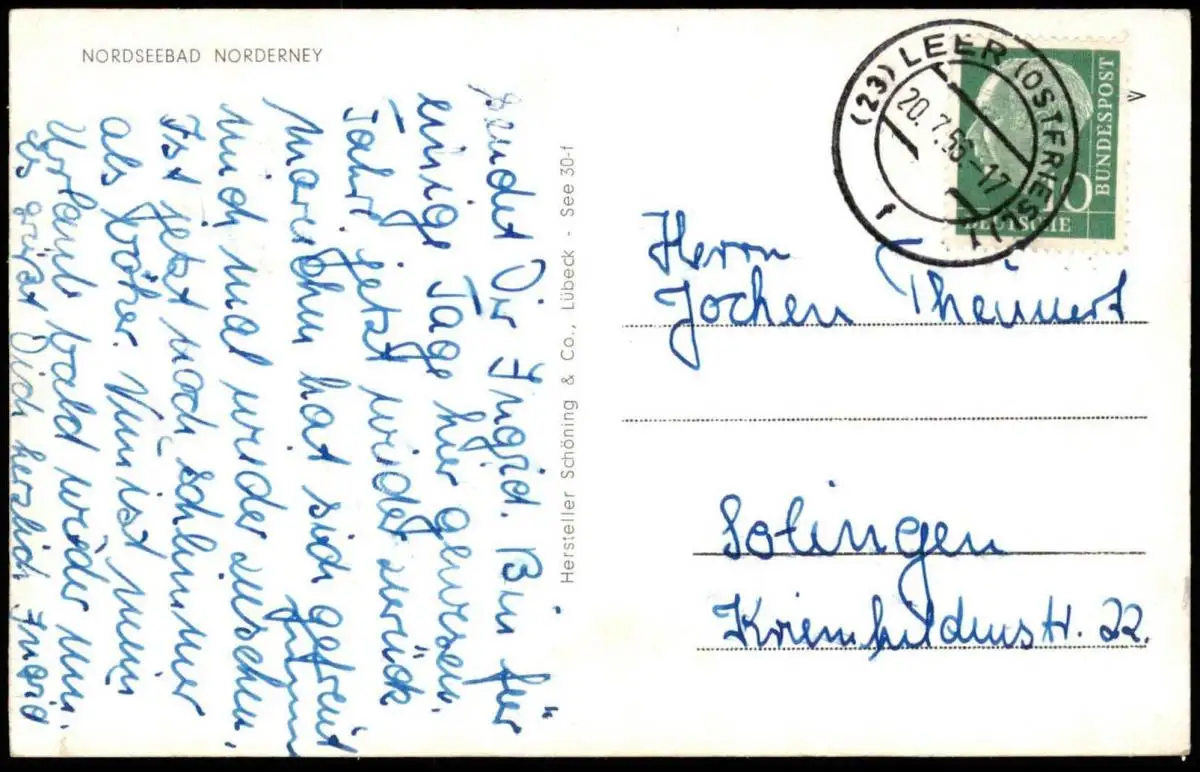 NORDSEEBAD NORDERNEY
sendet Dir Ingrid. Bin für
einige Tage hier gewesen.
Fahre jetzt wider zurück
Marienchen hat sich gefreut
mich mal wider zusehen.
Ist jetzt noch schlimmer
als früher. Nun ist mein
Urlaub bald wieder um.
Es grüßt Dich herzlich Ingrid
Hersteller Schöning & Co., Lübeck - See 30-f
(23) LEER (OSTFRIESL)
20.7.56-17
f
10
DEUTSCHE
BUNDESPOST
Herrn
Jochen Theunert
Solingen
Kriemhildenstr. 22.